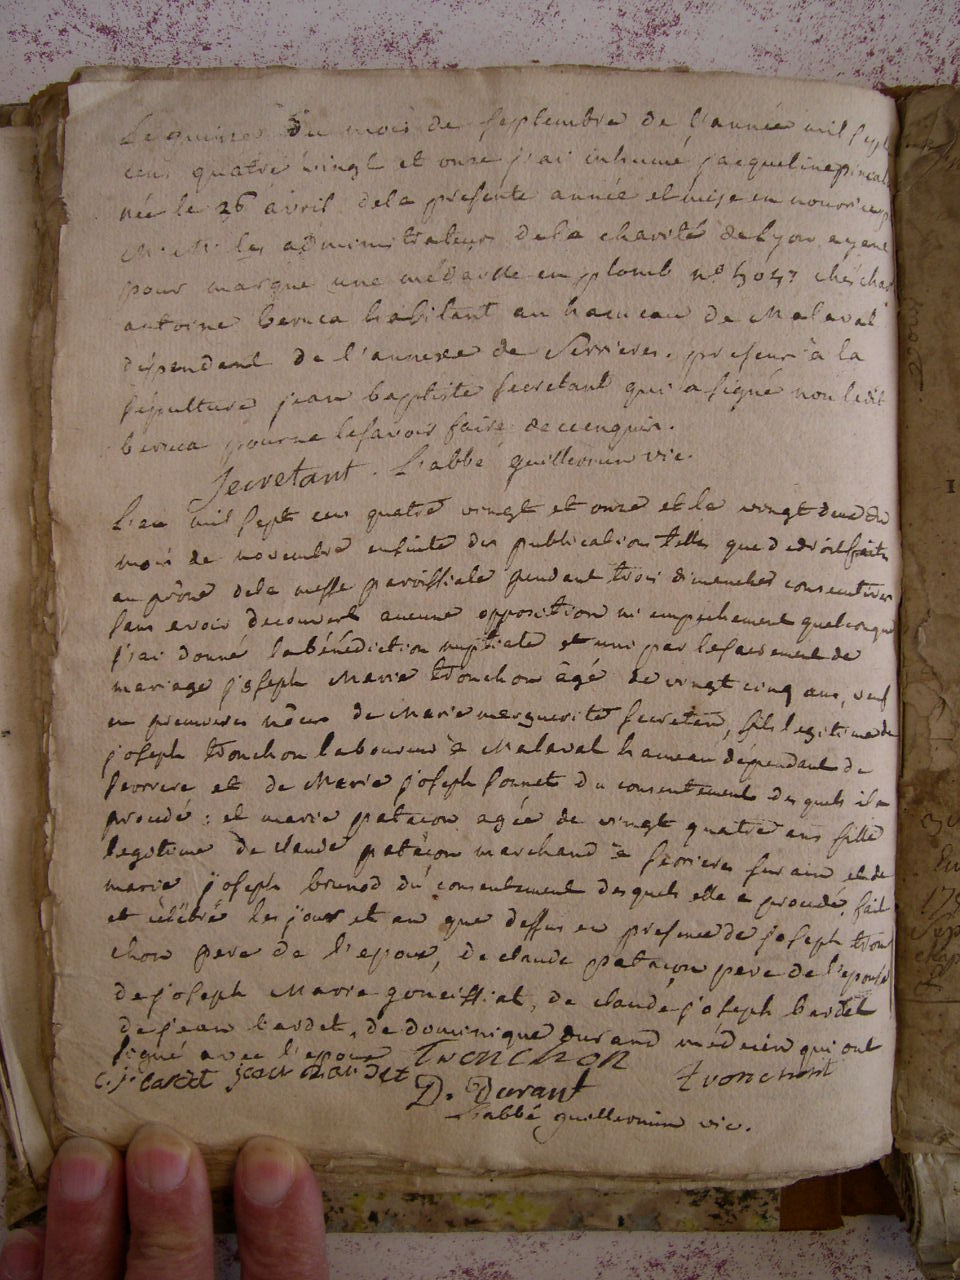 Le quinze du mois de septembre de l'année mil sept
cent quatre vingt et onze j'ai inhumé jacqueline
née le 26 avril dela presente année et mise en nourrice
M. M. les administrateurs dela charité de Lyon ayant
pour marque une médaille en plomb n° chés
antoine beruca habitant au hameau de Malaval
dépendant de l'annexe de Serrieres. presens a la
sépulture jean baptiste secretant qui a signé non ledit
beruca pour ne le savoir faire de ce enquis.
Secretant. L'abbé guillermin vic.
L'an mil sept cent quatre vingt et onze et le vingt deux du
mois de novembre ensuite des publications telles que de droit faites
au prône dela messe paroissiale pendant trois dimanches consecutives
sans avoir decouvert aucune opposition ni empechement quelconque
j'ai donné la bénédiction nuptiale et uni par le sacrement de
mariage joseph Marie tronchon âgé de vingt cinq ans, veuf
en premieres nôces de Marie marguerite secretan, fils legitime de
joseph tronchon laboureur a Malaval hameau dépendant de
serriere et de Marie joseph sonnet du consentement desquels il a
procedé : et marie patacon agée de vingt quatre ans fille
legitime de claude patacon marchand a serrieres sur ain et de
marie joseph brunod du consentement desquels elle a procedé, fait
et célébré les jour et an que dessus en presence de joseph tron
chon pere de l'epoux, de claude patacon pere de l'epouse
de joseph Marie gouciffiat, de claude joseph bardet
de jean bardet, de dominique durand médecin qui ont
signé avec l'epoux Tronchon tronchont
c. j. bardet jean bardet D. Durant
L'abbé guillermin vic.